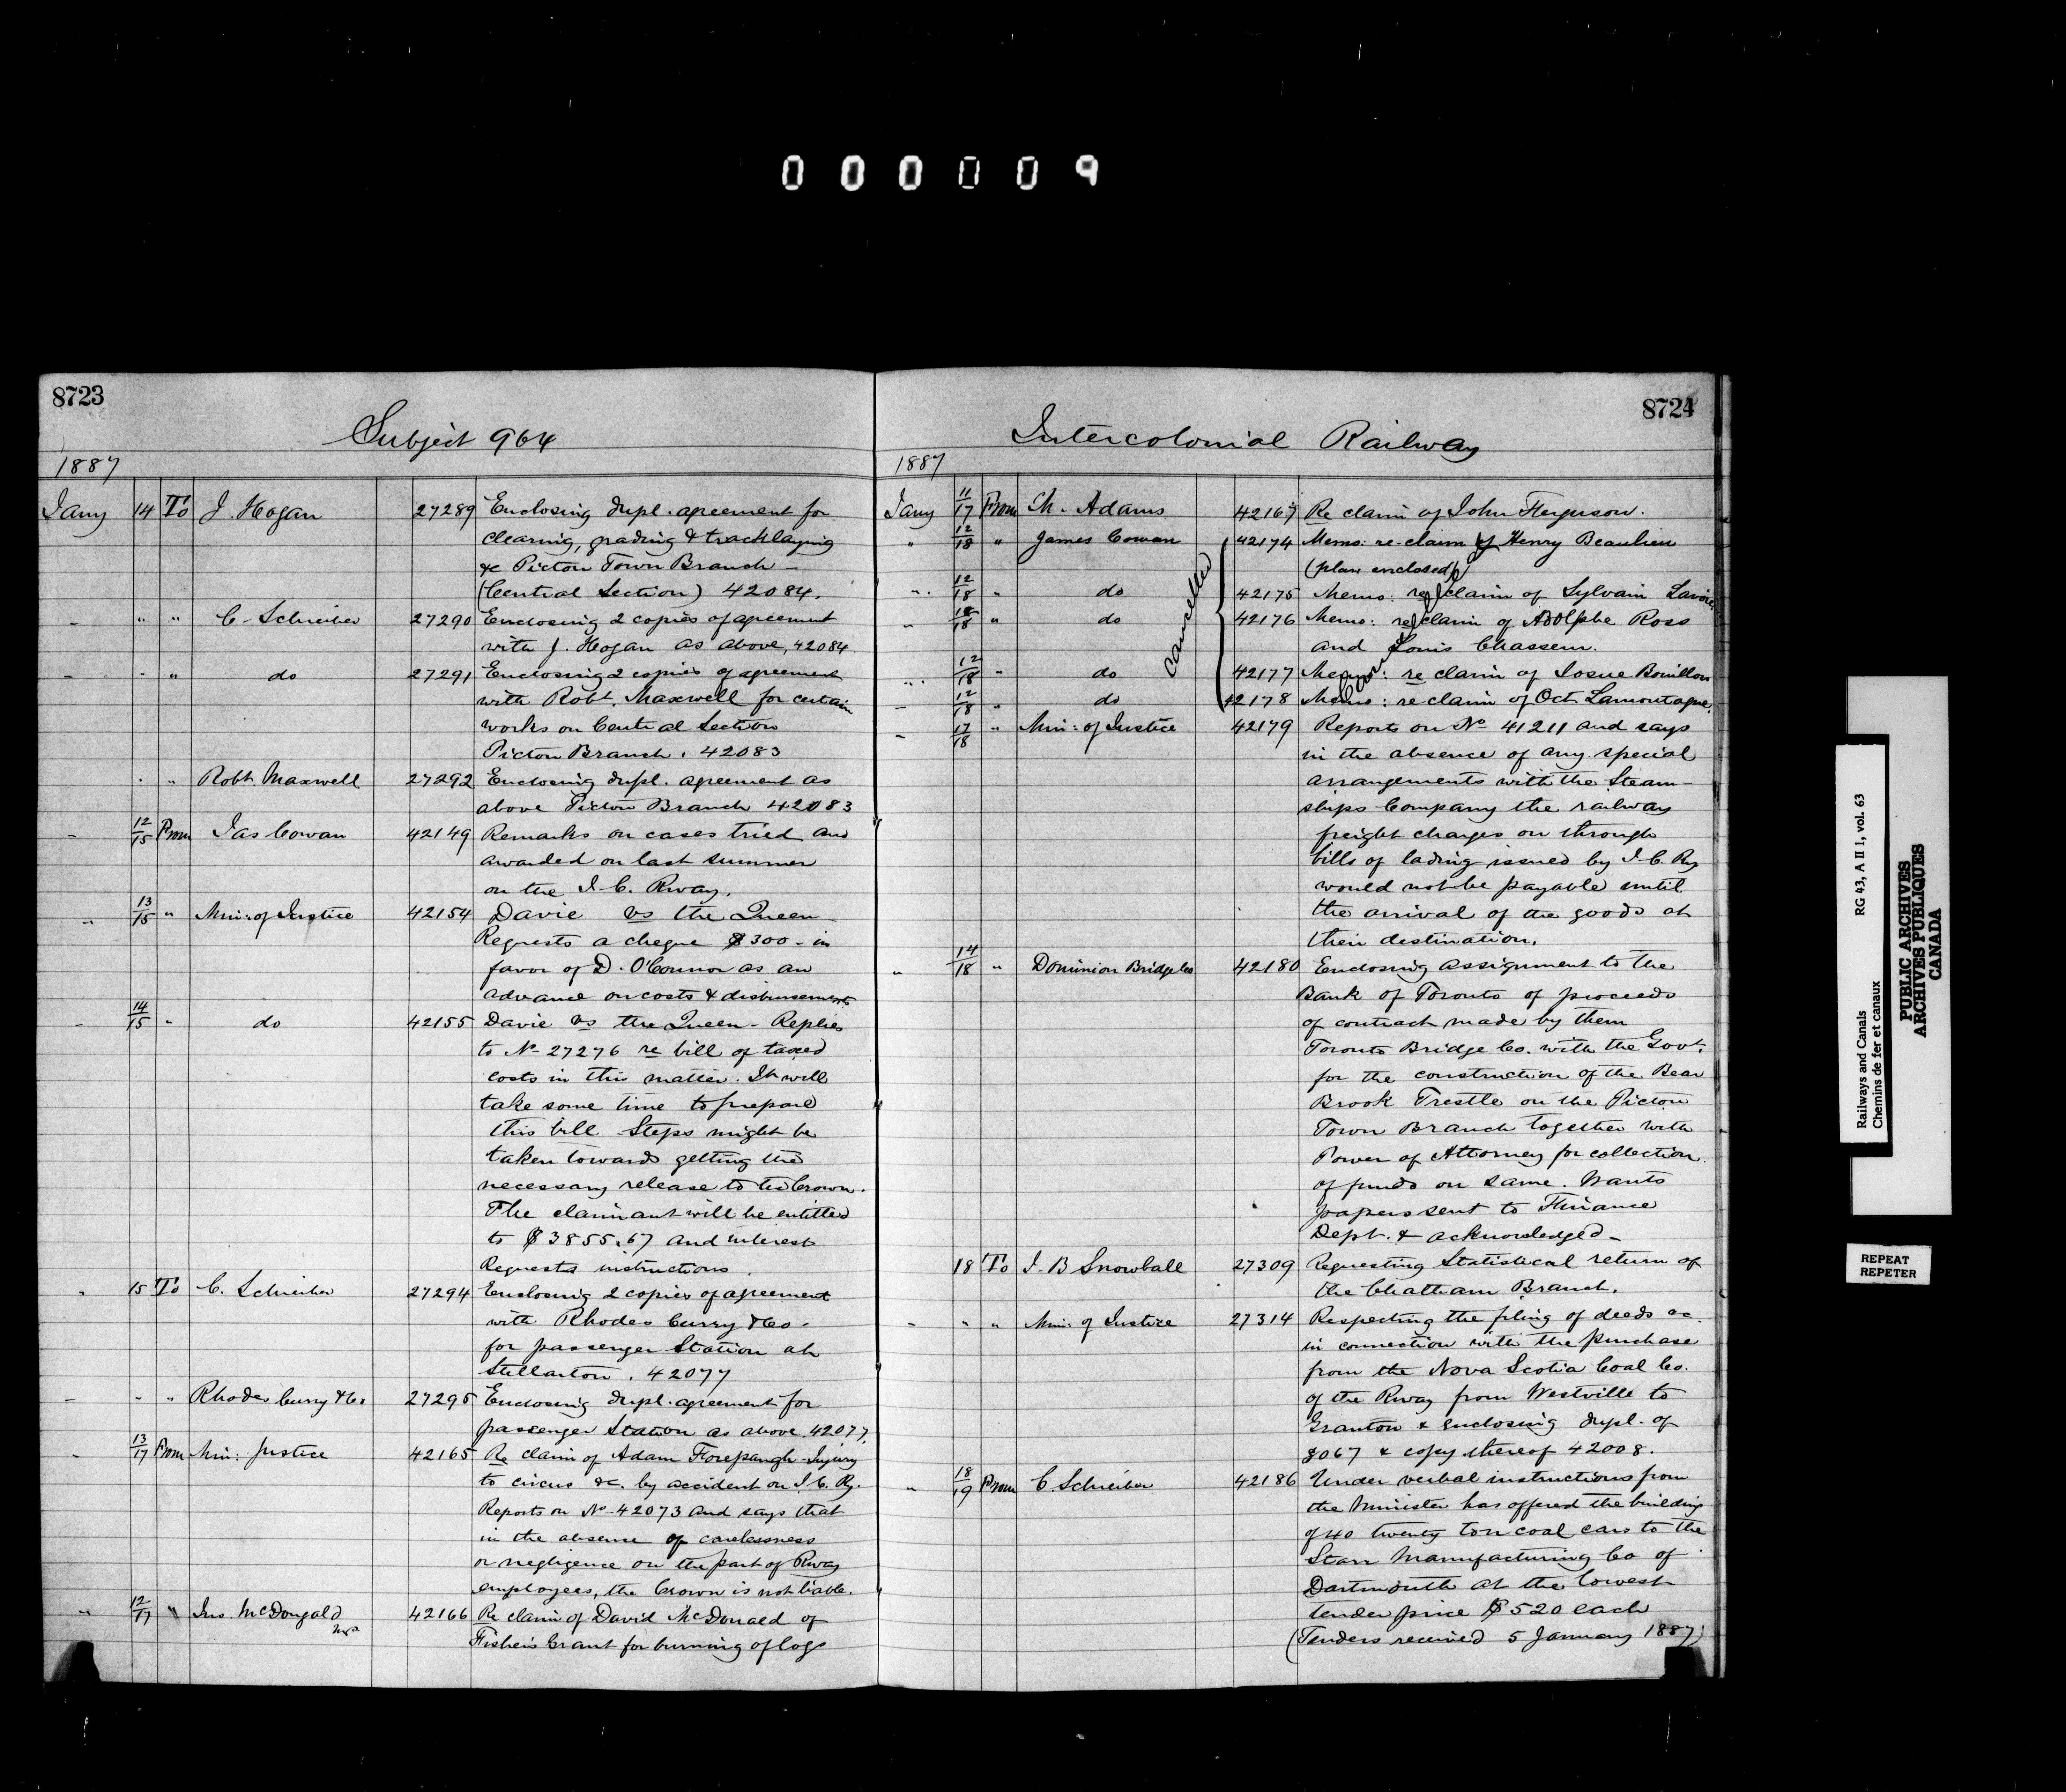 000009
8723
Subject 964
1887
Jany 14 To J. Hogan 27289 Enclosing dupl. agreement for
clearing, grading & tracklaying
&c Pictou Town Branch —
(Central Section) 42084.
" " " C. Schreiber 27290 Enclosing 2 copies of agreement
with J. Hogan as above, 42084
" " " do 27291 Enclosing 2 copies of agreement
with Robt. Maxwell for certain
works on Central Section
Pictou Branch. 42083
" " Robt. Maxwell 27292 Enclosing dupl. agreement as
above Pictou Branch 42083
" 12/15 From Jas Cowan 42149 Remarks on cases tried and
awarded on last summer
on the I. C. Rway.
" 13/15 " Min: of Justice 42154 Davie vs the Queen
Requests a cheque $300 - in
favor of D. O'Connor as an
advance on costs & disbursements
" 14/15 " do 42155 Davie vs the Queen - Replies
to No 27276 re bill of taxed
costs in this matter. It will
take some time to prepare
this bill Steps might be
taken towards getting the
necessary release to the Crown.
The claimant will be entitled
to $3855.67 and interest
Requests instructions.
" 15 To C. Schreiber 27294 Enclosing 2 copies of agreement
with Rhodes Curry & Co.
for passenger Station at
Stellarton. 42077
" " " Rhodes Curry & Co 27295 Enclosing dupl. agreement for
passenger Station as above. 42077.
" 13/17 From Min: Justice 42165 Re claim of Adam Forepaugh - Injury
to circus &c. by accident on I. C. Ry.
Reports on No 42073 and says that
in the absence of carelessness
or negligence on the part of Rway
employees, the Crown is not liable.
" 12/17 " Jno. McDougald 42166 Re claim of David McDonald of
MP Fishers Grant for burning of logs
8724
Intercolonial Railway
1887
Jany 11/17 From M. Adams 42167 Re claim of John Ferguson.
" 12/18 " James Cowan 42174 Memo: re claim of Henry Beaulieu
(plan enclosed)
" 12/18 " do 42175 Memo: re claim of Sylvain Lavoie
" 12/18 " do 42176 Memo: re claim of Adolphe Ross
and Louis Chasseur.
" 12/18 " do 42177 Memo: re claim of Josue Bouillon
" 12/18 " do 42178 Memo: re claim of Oct. Lamontagne.
cancelled
" 17/18 " Min: of Justice 42179 Reports on No 41211 and says
in the absence of any special
arrangements with the Steam-
ships Company the railway
freight charges on through
bills of lading issued by I. C. Ry
would not be payable until
the arrival of the goods at
their destination.
" 14/18 " Dominion Bridge Co 42180 Enclosing assignment to the
Bank of Toronto of proceeds
of contract made by them
Toronto Bridge Co. with the Govt.
for the construction of the Bear
Brook Trestle on the Pictou
Town Branch together with
Power of Attorney for collection
of funds on same. Wants
papers sent to Finance
Dept. & acknowledged —
18 To J. B Snowball 27309 Requesting Statistical return of
the Chatham Branch.
" " " Min: of Justice 27314 Respecting the filing of deeds &c.
in connection with the purchase
from the Nova Scotia Coal Co.
of the Rway from Westville to
Granton & enclosing dupl. of
8067 & copy thereof 42008.
" 18/19 From C. Schreiber 42186 Under verbal instructions from
the Minister has offered the building
of 40 twenty ton coal cars to the
Starr Manufacturing Co of
Dartmouth at the lowest
tender price $520 each
(Tenders received 5 January 1887)
Railways and Canals RG 43, A II 1, vol. 63
Chemins de fer et canaux
PUBLIC ARCHIVES
ARCHIVES PUBLIQUES
CANADA
REPEAT
REPETER